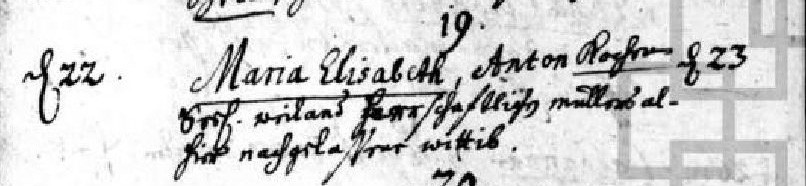 19.
22. Maria Elisabeth, Anton 23
weiland herrschafftlichen müllers al-
hier nachgelassene wittib.